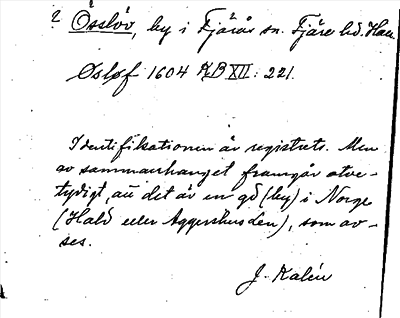 ? Össlöv, by i Fjärås sn. Fjäre hd. Hall.
Øslof 1604 KB XII: 221.
Identifikationen är registrets. Men
av sammanhanget framgår otve-
tydigt, att det är en gd (by) i Norge
(Hald eller Aggershus len), som av-
ses.
J. Kalén